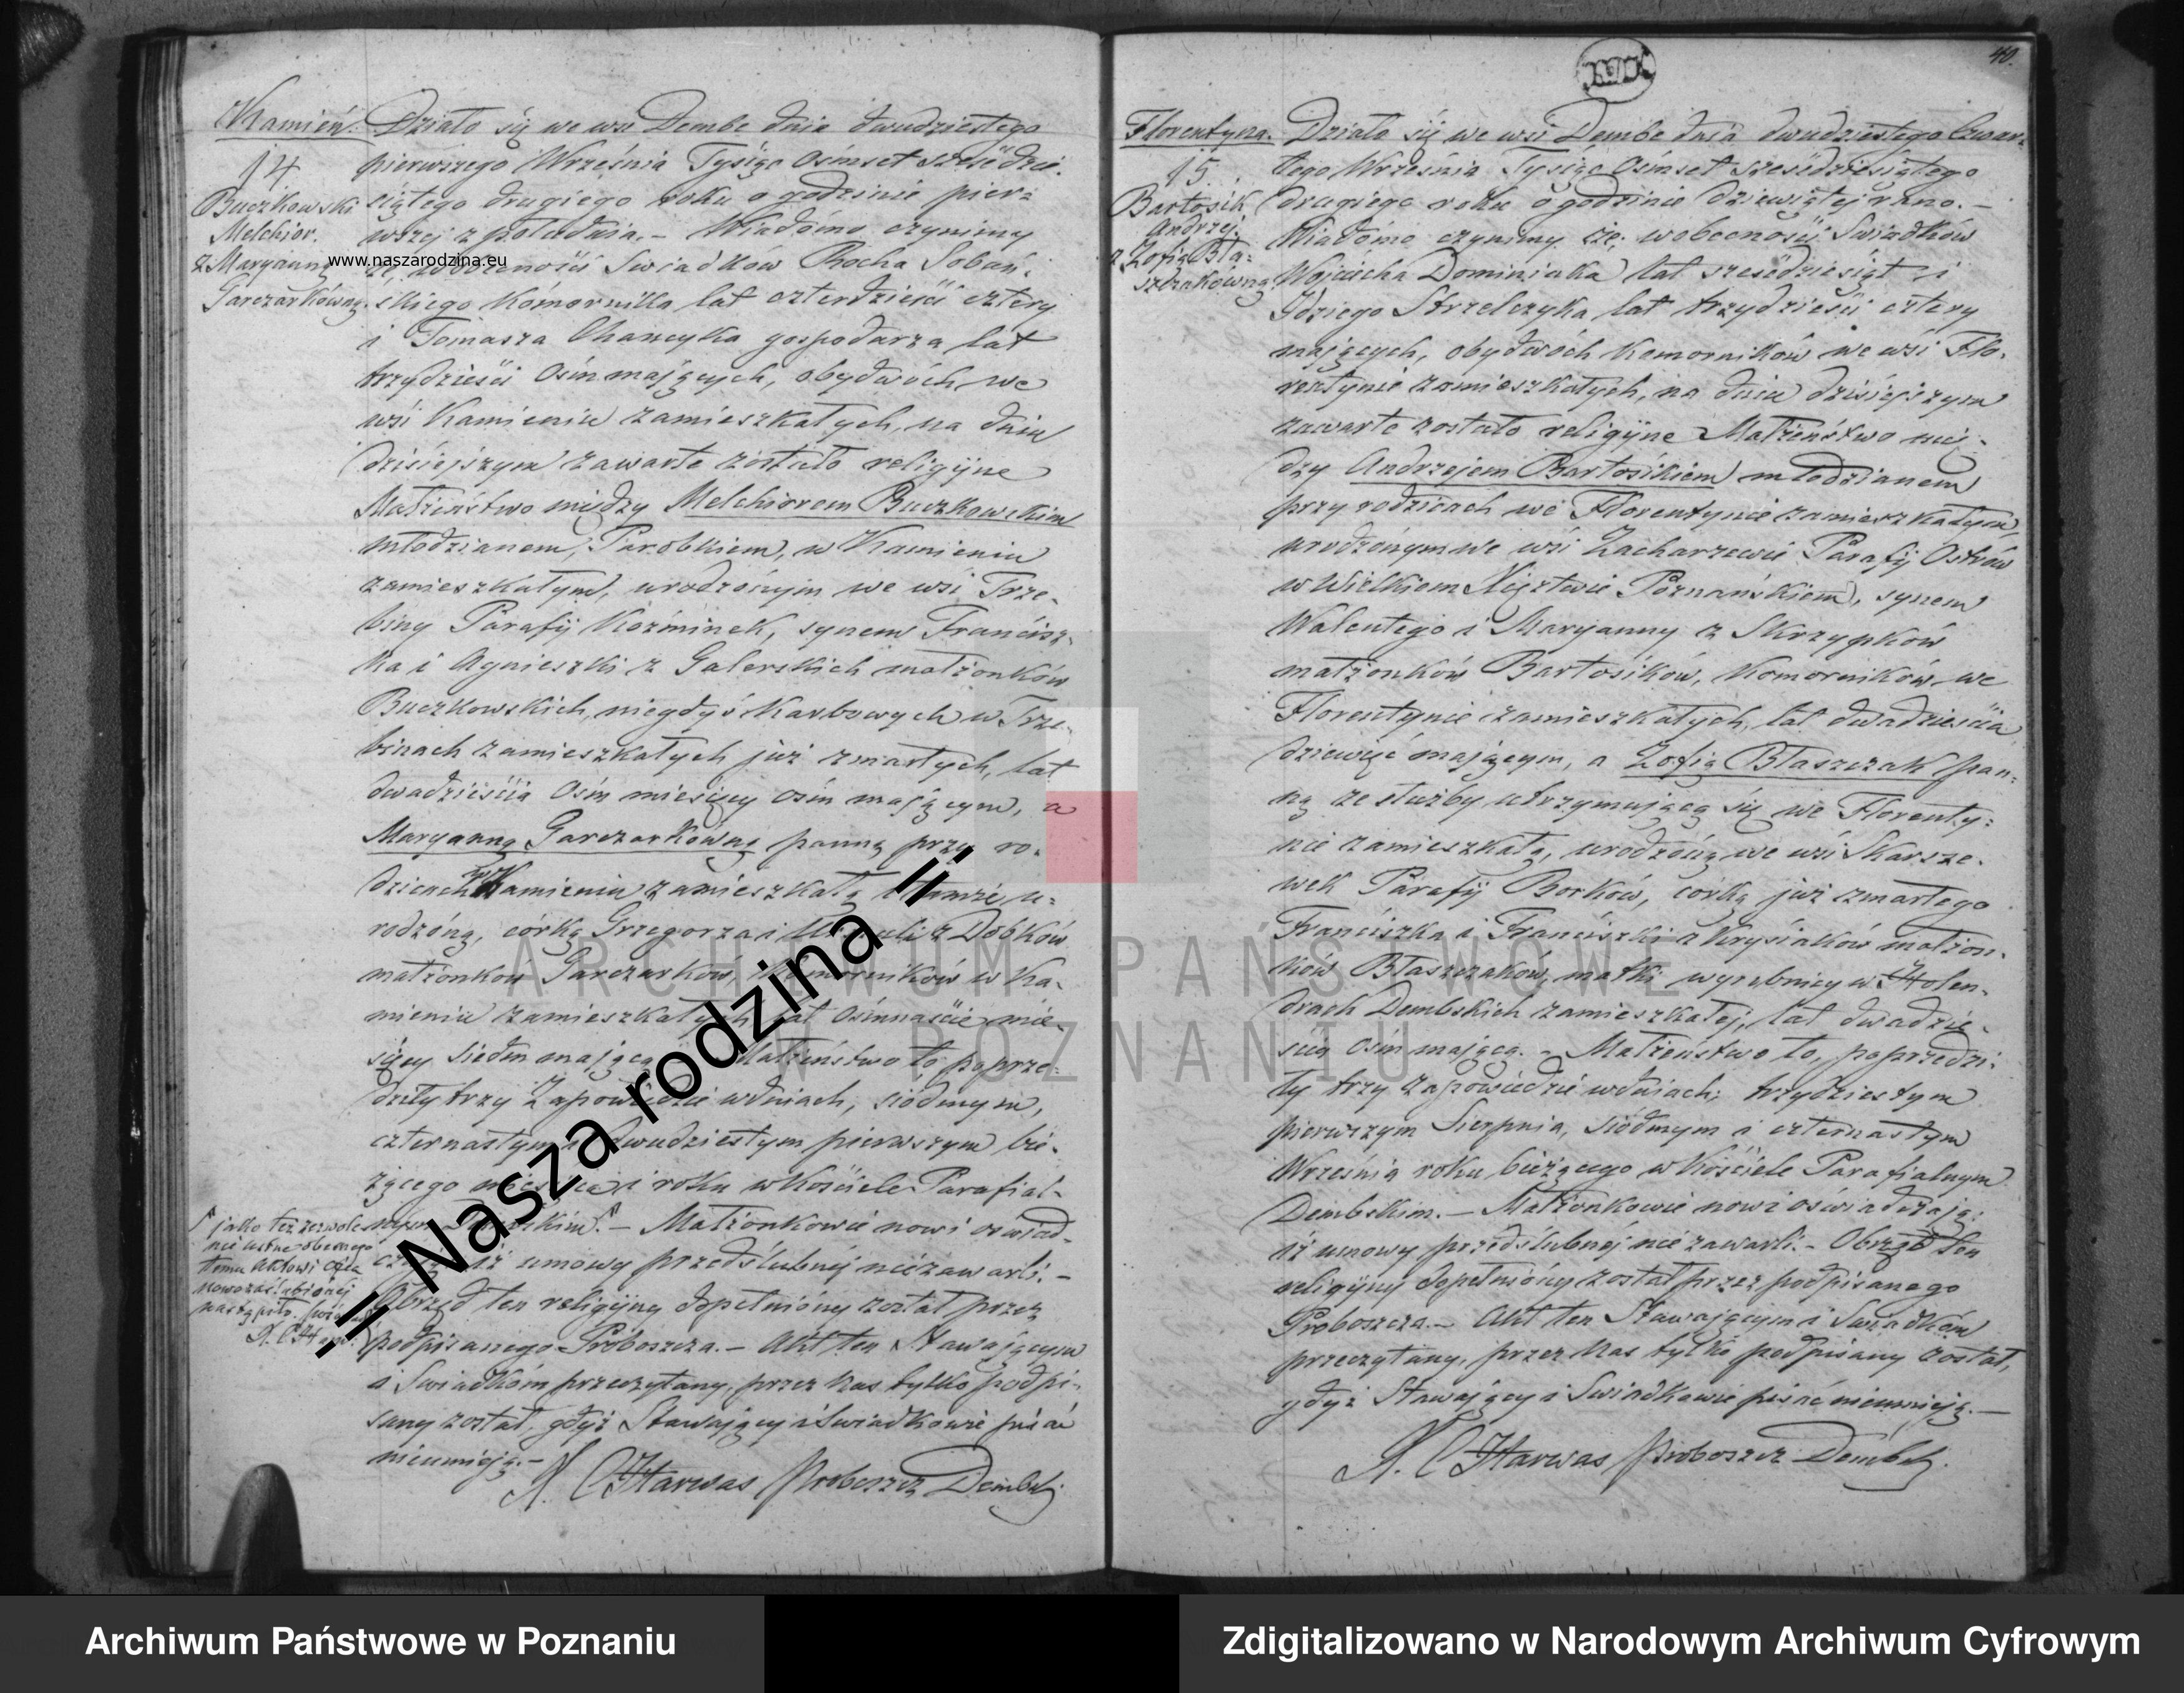 Kamień.
14
Buczkowski
Melchior.
z Maryanną
Garczarkówną.
Działo się we wsi Dembe dnia dwudziestego
pierwszego Września Tysiąc Ośmset sześćdzie-
siątego drugiego roku o godzinie pier-
wszej z południa. – Wiadomo czynimy
że, w obecności Swiadków Rocha Sobań-
skiego Komornika lat czterdzieści cztery
i Tomasza Chamcyka gospodarza lat
trzydzieści Osim mających, obydwóch we
wsi Kamieniu zamieszkałych, na dniu
dzisiejszym zawarte zostało religijne
Małżeństwo między Melchiorem Buczkowskim
młodzianem, Parobkiem, w Kamieniu
zamieszkałym, urodzonym we wsi Trze-
biny Parafij Koźminek, synem Francisz-
ka i Agnieszki z Galerskich małżonków
Buczkowskich, niegdyś Karbowych w Trze-
binach zamieszkałych już zmarłych, lat
dwadzieścia Ośm miesięcy ośm mającym, a
Maryanną Garczarkówną panną przy ro-
dzicach w Kamieniu zamieszkałą i tamże u-
rodzoną, córką Grzegorza i z Dobków
małżonków Garczarków, Komorników w Ka-
mieniu zamieszkałych lat Ośmnaście mie-
sięcy siedm mającą. Małżeństwo to poprze-
dziły trzy Zapowiedzie w dniach, siódmym,
czternastym i dwudziestym pierwszym bie-
żącego miesiąca i roku w kościele Parafial-
nym Dembskim. – Małżonkowie nowi oświad-
czają iż umowy przedślubnéj niezawarli. –
Obrzęd ten religijny dopełniony został przez
podpisanego Proboszcza. – Akt ten Stawającym
i Swiadkom przeczytany, przez Nas tylko podpi-
sany został, gdyż Stawający i Swiadkowie pisać
nieumieją. –
jako też zezwole
nie ustne obecnego
temu Aktowi Ojca
nowozaślubionéj
nastąpiło.
X. C Harwas Proboszcz Dembski
40.
Florentyna.
15.
Bartosik
Andrzéj.
z Zofią Bła-
szczakówną
Działo się we wsi Dembe dnia dwudziestego Czwar-
tego Września Tysiąc Ośmset sześćdziesiątego
drugiego roku o godzinie dziewiątej rano. –
Wiadomo czynimy że; w obecności Swiadków
Wojciecha Dominiaka lat sześćdziesiąt i
Idziego Strzelczyka lat trzydzieści cztery
mających, obydwóch Komorników we wsi Flo-
rentynie zamieszkałych, na dniu dzisiejszym
zawarte zostało religijne Małżeństwo mię-
dzy Andrzejem Bartosikiem młodzianem
przy rodzicach we Florentynie zamieszkałym,
urodzonym we wsi Zacharzewie Parafij Ostrów
w Wielkiem Xięztwie Poznańskiem, synem
Walentego i Maryanny z Skrzypków
małżonków Bartosików, Komorników we
Florentynie zamieszkałych, lat dwadzieścia
dziewięć mającym, a Zofią Błaszczak pan-
ną ze służby utrzymującą się we Florenty-
nie zamieszkałą, urodzoną we wsi Skarsze-
wek Parafij Borków, córką już zmarłego
Franciszka i Franciszki z Krysiaków małżon-
ków Błaszczaków, matki wyrobnicy w Holen-
drach Dembskich zamieszkałej, lat dwadzie-
ścia ośm mającą. – Małżeństwo to, poprzedzi-
ły trzy zapowiedzie w dniach; trzydziestym
pierwszym Sierpnia, siódmym i czternastym
Września roku bieżącego w kościele Parafialnym
Dembskim. – Małżonkowie nowi oświadczają;
iż umowy przedślubnéj nie zawarli. – Obrzęd ten
religijny dopełniony został przez podpisanego
Proboszcza. – Akt ten Stawającym i Swiadkom
przeczytany, przez Nas tylko podpisany został,
gdyż Stawający i Swiadkowie pisać nieumieją. –
X. C Harwas Proboszcz Dembski.
www.naszarodzina.eu
=| Nasza rodzina |=
ARCHIWUM PAŃSTWOWE
W POZNANIU
Archiwum Państwowe w Poznaniu
Zdigitalizowano w Narodowym Archiwum Cyfrowym